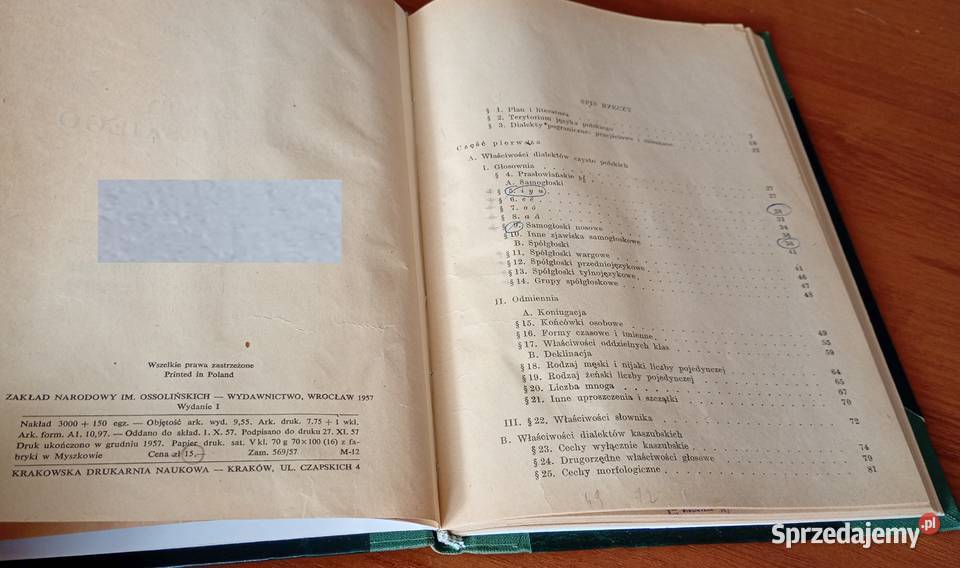 Wszelkie prawa zastrzeżone
Printed in Poland
ZAKŁAD NARODOWY IM. OSSOLIŃSKICH — WYDAWNICTWO, WROCŁAW 1957
Wydanie I
Nakład 3000 + 150 egz. — Objętość ark. wyd. 9,55. Ark. druk. 7.75 + 1 wkl.
Ark. form. A1, 10,97. — Oddano do skład. 1. X. 57. Podpisano do druku 27. XI. 57
Druk ukończono w grudniu 1957. Papier druk. sat. V kl. 70 g 70×100 (16) z fa-
bryki w Myszkowie Cena zł 15,— Zam. 569/57 M-12
KRAKOWSKA DRUKARNIA NAUKOWA — KRAKÓW, UL. CZAPSKICH 4
SPIS RZECZY
§ 1. Plan i literatura
§ 2. Terytorium języka polskiego
§ 3. Dialekty pograniczne: przejściowe i mieszane 22
Część pierwsza
A. Właściwości dialektów czysto polskich
I. Głosownia
§ 4. Prasłowiańskie
A. Samogłoski 27
§ 5. i y u 27
§ 6. e é
§ 7. o ó 28
§ 8. a á 33
§ 9. Samogłoski nosowe 34
§ 10. Inne zjawiska samogłoskowe 36
B. Spółgłoski 38
§ 11. Spółgłoski wargowe 41
§ 12. Spółgłoski przedniojęzykowe 41
§ 13. Spółgłoski tylnojęzykowe 46
§ 14. Grupy spółgłoskowe 47
48
II. Odmiennia
A. Koniugacja
§ 15. Końcówki osobowe
§ 16. Formy czasowe i imienne 49
§ 17. Właściwości oddzielnych klas 55
B. Deklinacja 59
§ 18. Rodzaj męski i nijaki liczby pojedynczej
§ 19. Rodzaj żeński liczby pojedynczej 64
§ 20. Liczba mnoga 65
§ 21. Inne uproszczenia i szczątki 67
70
III. § 22. Właściwości słownika 72
B. Właściwości dialektów kaszubskich
§ 23. Cechy wyłącznie kaszubskie 74
§ 24. Drugorzędne właściwości głosowe 79
§ 25. Cechy morfologiczne 81
Sprzedajemy.pl